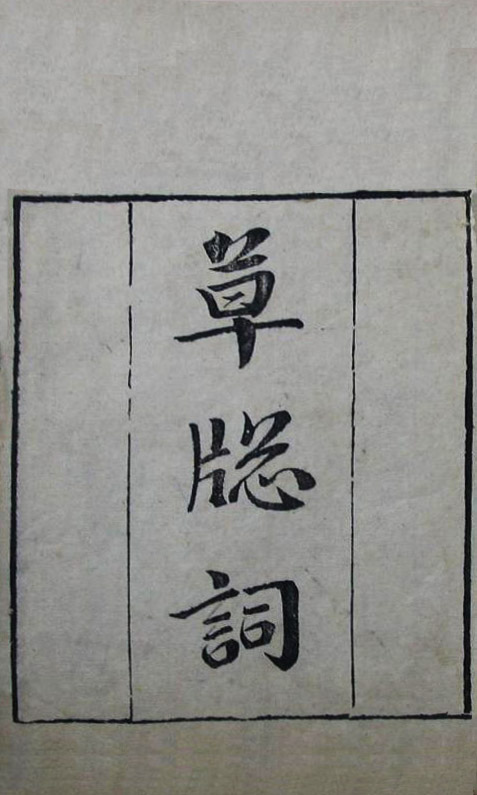 草牕詞